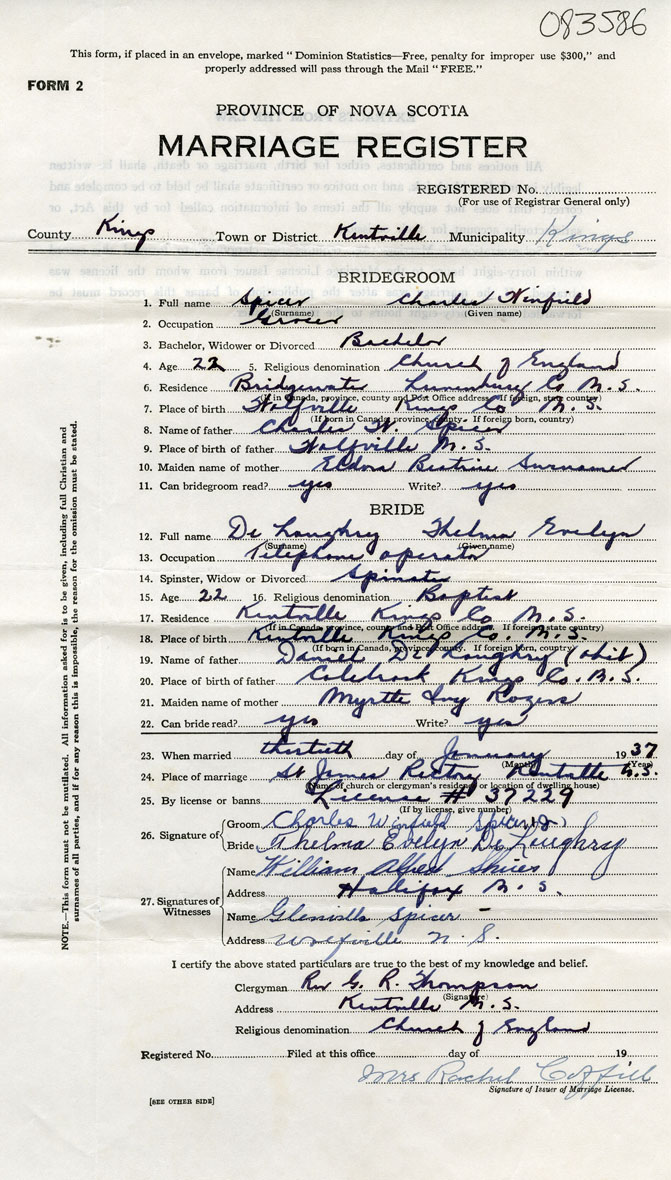 083586
This form, if placed in an envelope, marked "Dominion Statistics—Free, penalty for improper use $300," and
properly addressed will pass through the Mail "FREE."
FORM 2
PROVINCE OF NOVA SCOTIA
MARRIAGE REGISTER
REGISTERED No.
(For use of Registrar General only)
County Kings Town or District Kentville Municipality Kings
BRIDEGROOM
1. Full name Spicer Charles Winfield
(Surname) (Given name)
2. Occupation Grocer
3. Bachelor, Widower or Divorced Bachelor
4. Age 22 5. Religious denomination Church of England
6. Residence Bridgewater Lunenburg Co N.S.
(If in Canada, province, county and Post Office address. If foreign, state country)
7. Place of birth Wolfville Kings Co N.S.
(If born in Canada, province, county. If foreign born, country)
8. Name of father Charles W. Spicer
9. Place of birth of father Wolfville N.S.
10. Maiden name of mother Eldora Beatrice
11. Can bridegroom read? yes Write? yes
BRIDE
12. Full name DeLoughry Thelma Evelyn
(Surname) (Given name)
13. Occupation Telephone operator
14. Spinster, Widow or Divorced Spinster
15. Age 22 16. Religious denomination Baptist
17. Residence Kentville Kings Co N.S.
(If in Canada, province, county and Post Office address. If foreign state country)
18. Place of birth Kentville Kings Co. N.S.
(If born in Canada, province, county. If foreign born, country)
19. Name of father Daniel DeLoughry
20. Place of birth of father Kings Co. N.S.
21. Maiden name of mother Myrtle Ivy Rogers
22. Can bride read? yes Write? yes
23. When married thirtieth day of January 1937
(Month) (Year)
24. Place of marriage St James Rectory Kentville N.S.
(Name of church or clergyman's residence or location of dwelling house)
25. By license or banns License # 37229
(If by license, give number)
26. Signature of Groom Charles Winfield Spicer
Bride Thelma Evelyn DeLoughry
27. Signatures of Witnesses
Name William Alfred
Address Halifax N.S.
Name Glenville Spicer
Address Wolfville N.S.
I certify the above stated particulars are true to the best of my knowledge and belief.
Clergyman Rev G. R. Thompson
(Signature)
Address Kentville N.S.
Religious denomination Church of England
Registered No. Filed at this office day of 19
Mrs Rachel
Signature of Issuer of Marriage License.
[SEE OTHER SIDE]
NOTE.—This form must not be mutilated. All information asked for is to be given, including full Christian and
surnames of all parties, and if for any reason this is impossible, the reason for the omission must be stated.